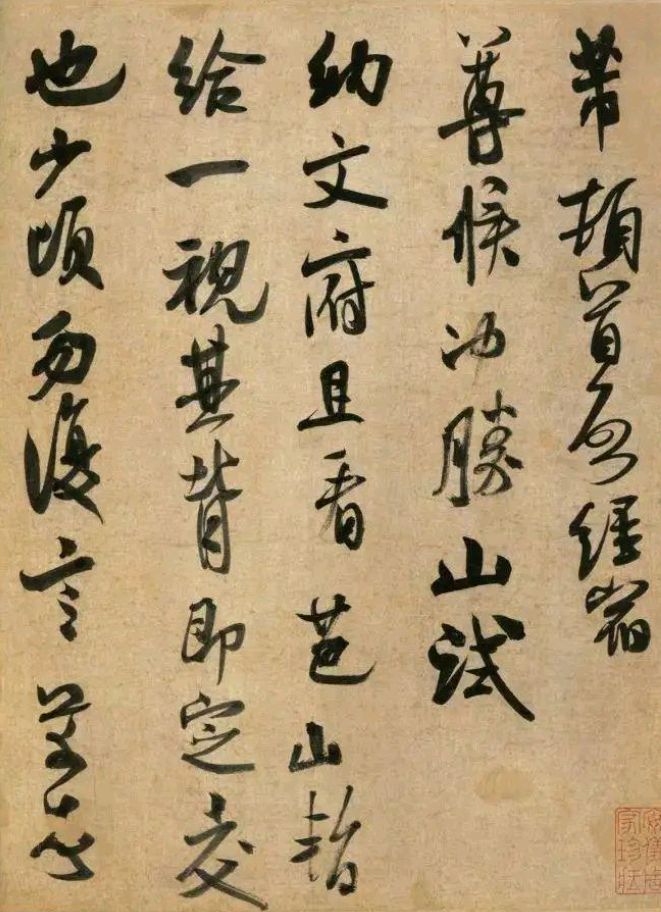 芾頓首啓經宿
尊候沖勝山試
納文府且看芭山暫
給一視其背即定交
也少頃勿復言芾頓首